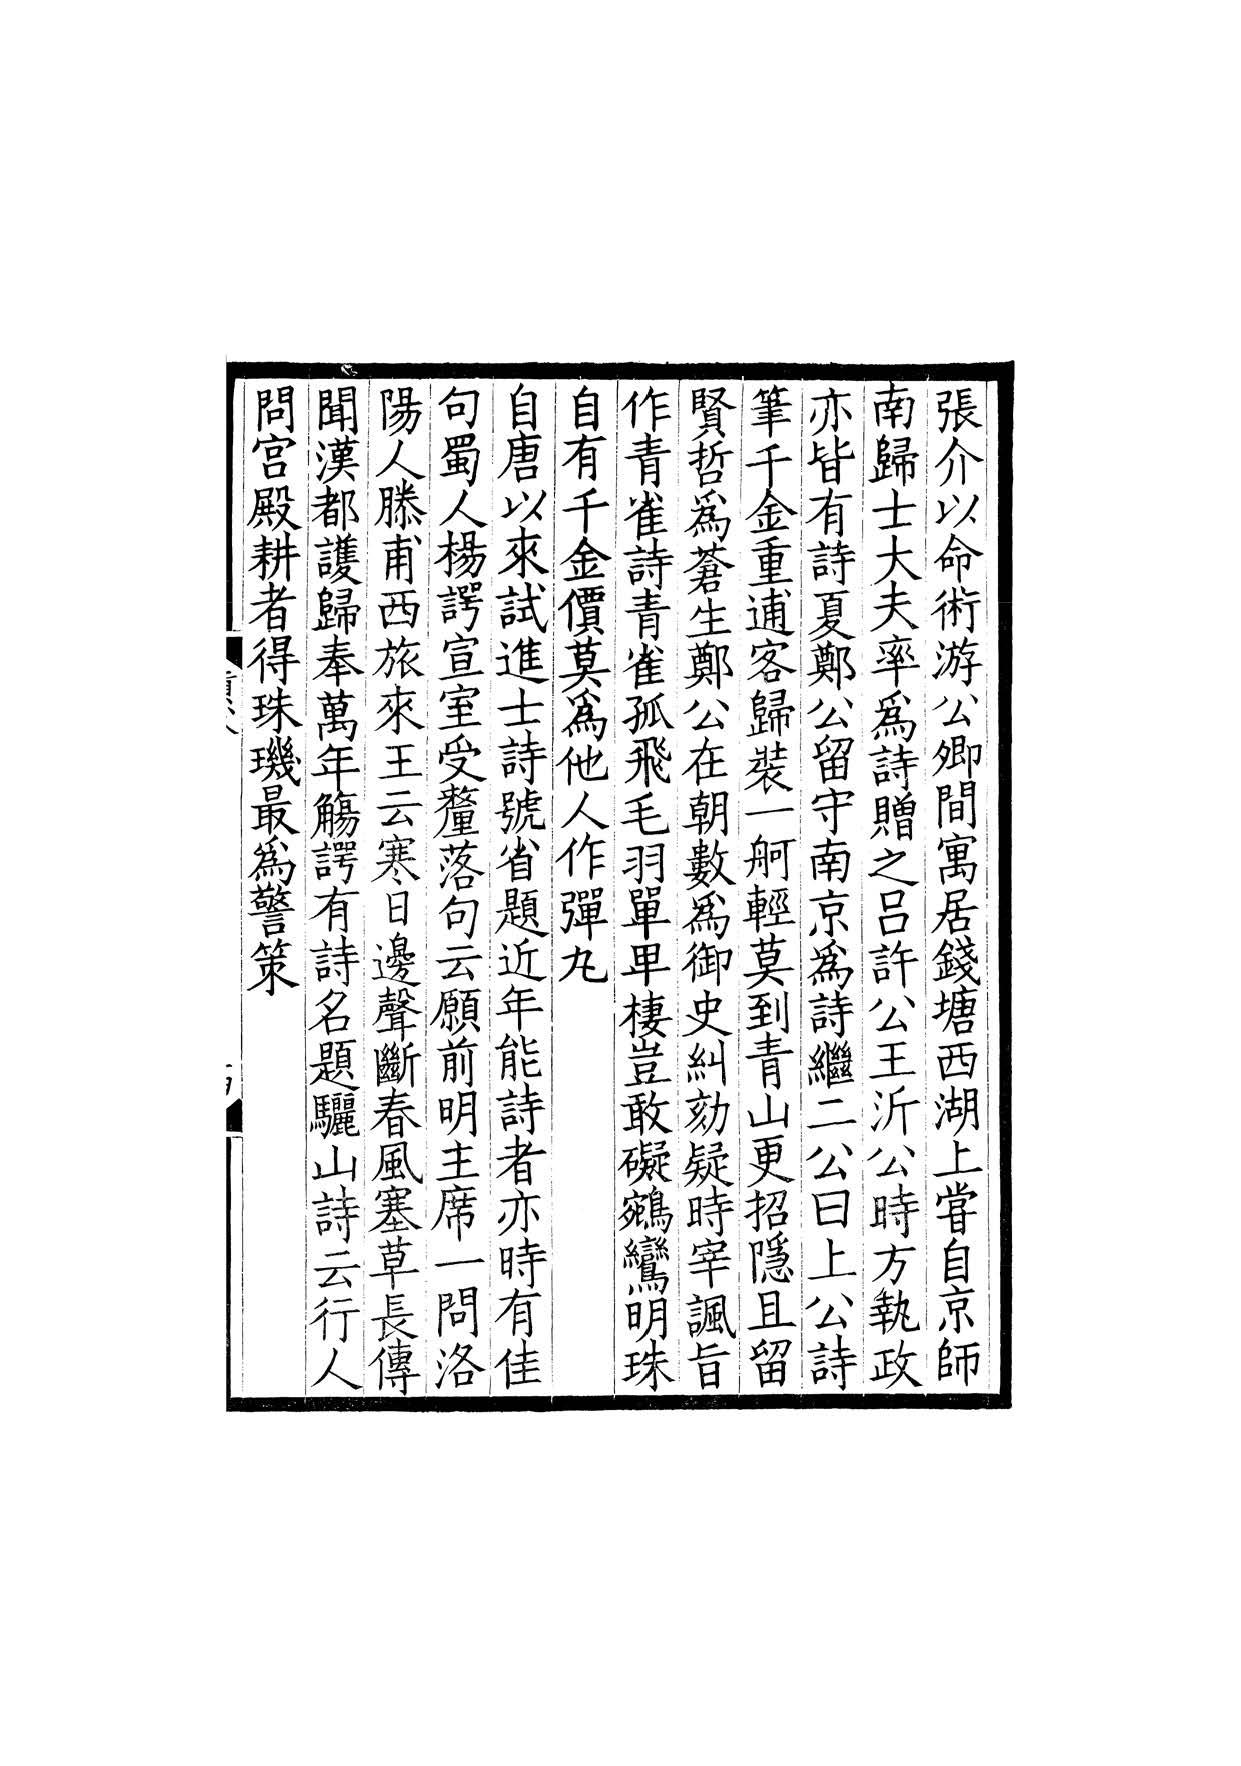 張介以命術游公卿間寓居錢塘西湖上嘗自京師
南歸士大夫率爲詩贈之吕許公王沂公時方執政
亦皆有詩夏鄭公留守南京爲詩繼二公曰上公詩
筆千金重逋客歸裝一舸輕莫到青山更招隱且留
賢哲爲蒼生鄭公在朝數爲御史糾劾疑時宰諷旨
作青雀詩青雀孤飛毛羽單卑棲豈敢礙鵷鸞明珠
自有千金價莫爲他人作彈丸
自唐以來試進士詩號省題近年能詩者亦時有佳
句蜀人楊諤宣室受釐落句云願前明主席一問洛
陽人滕甫西旅來王云寒日邊聲斷春風塞草長傳
聞漢都護歸奉萬年觴諤有詩名題驪山詩云行人
問宫殿耕者得珠璣最爲警策